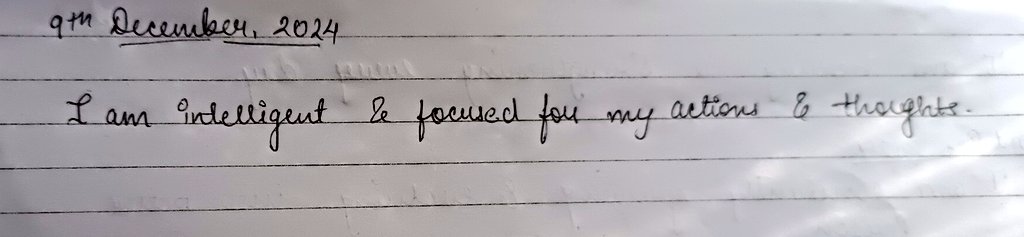 9th December, 2024
I am intelligent & focused for my actions & thoughts.